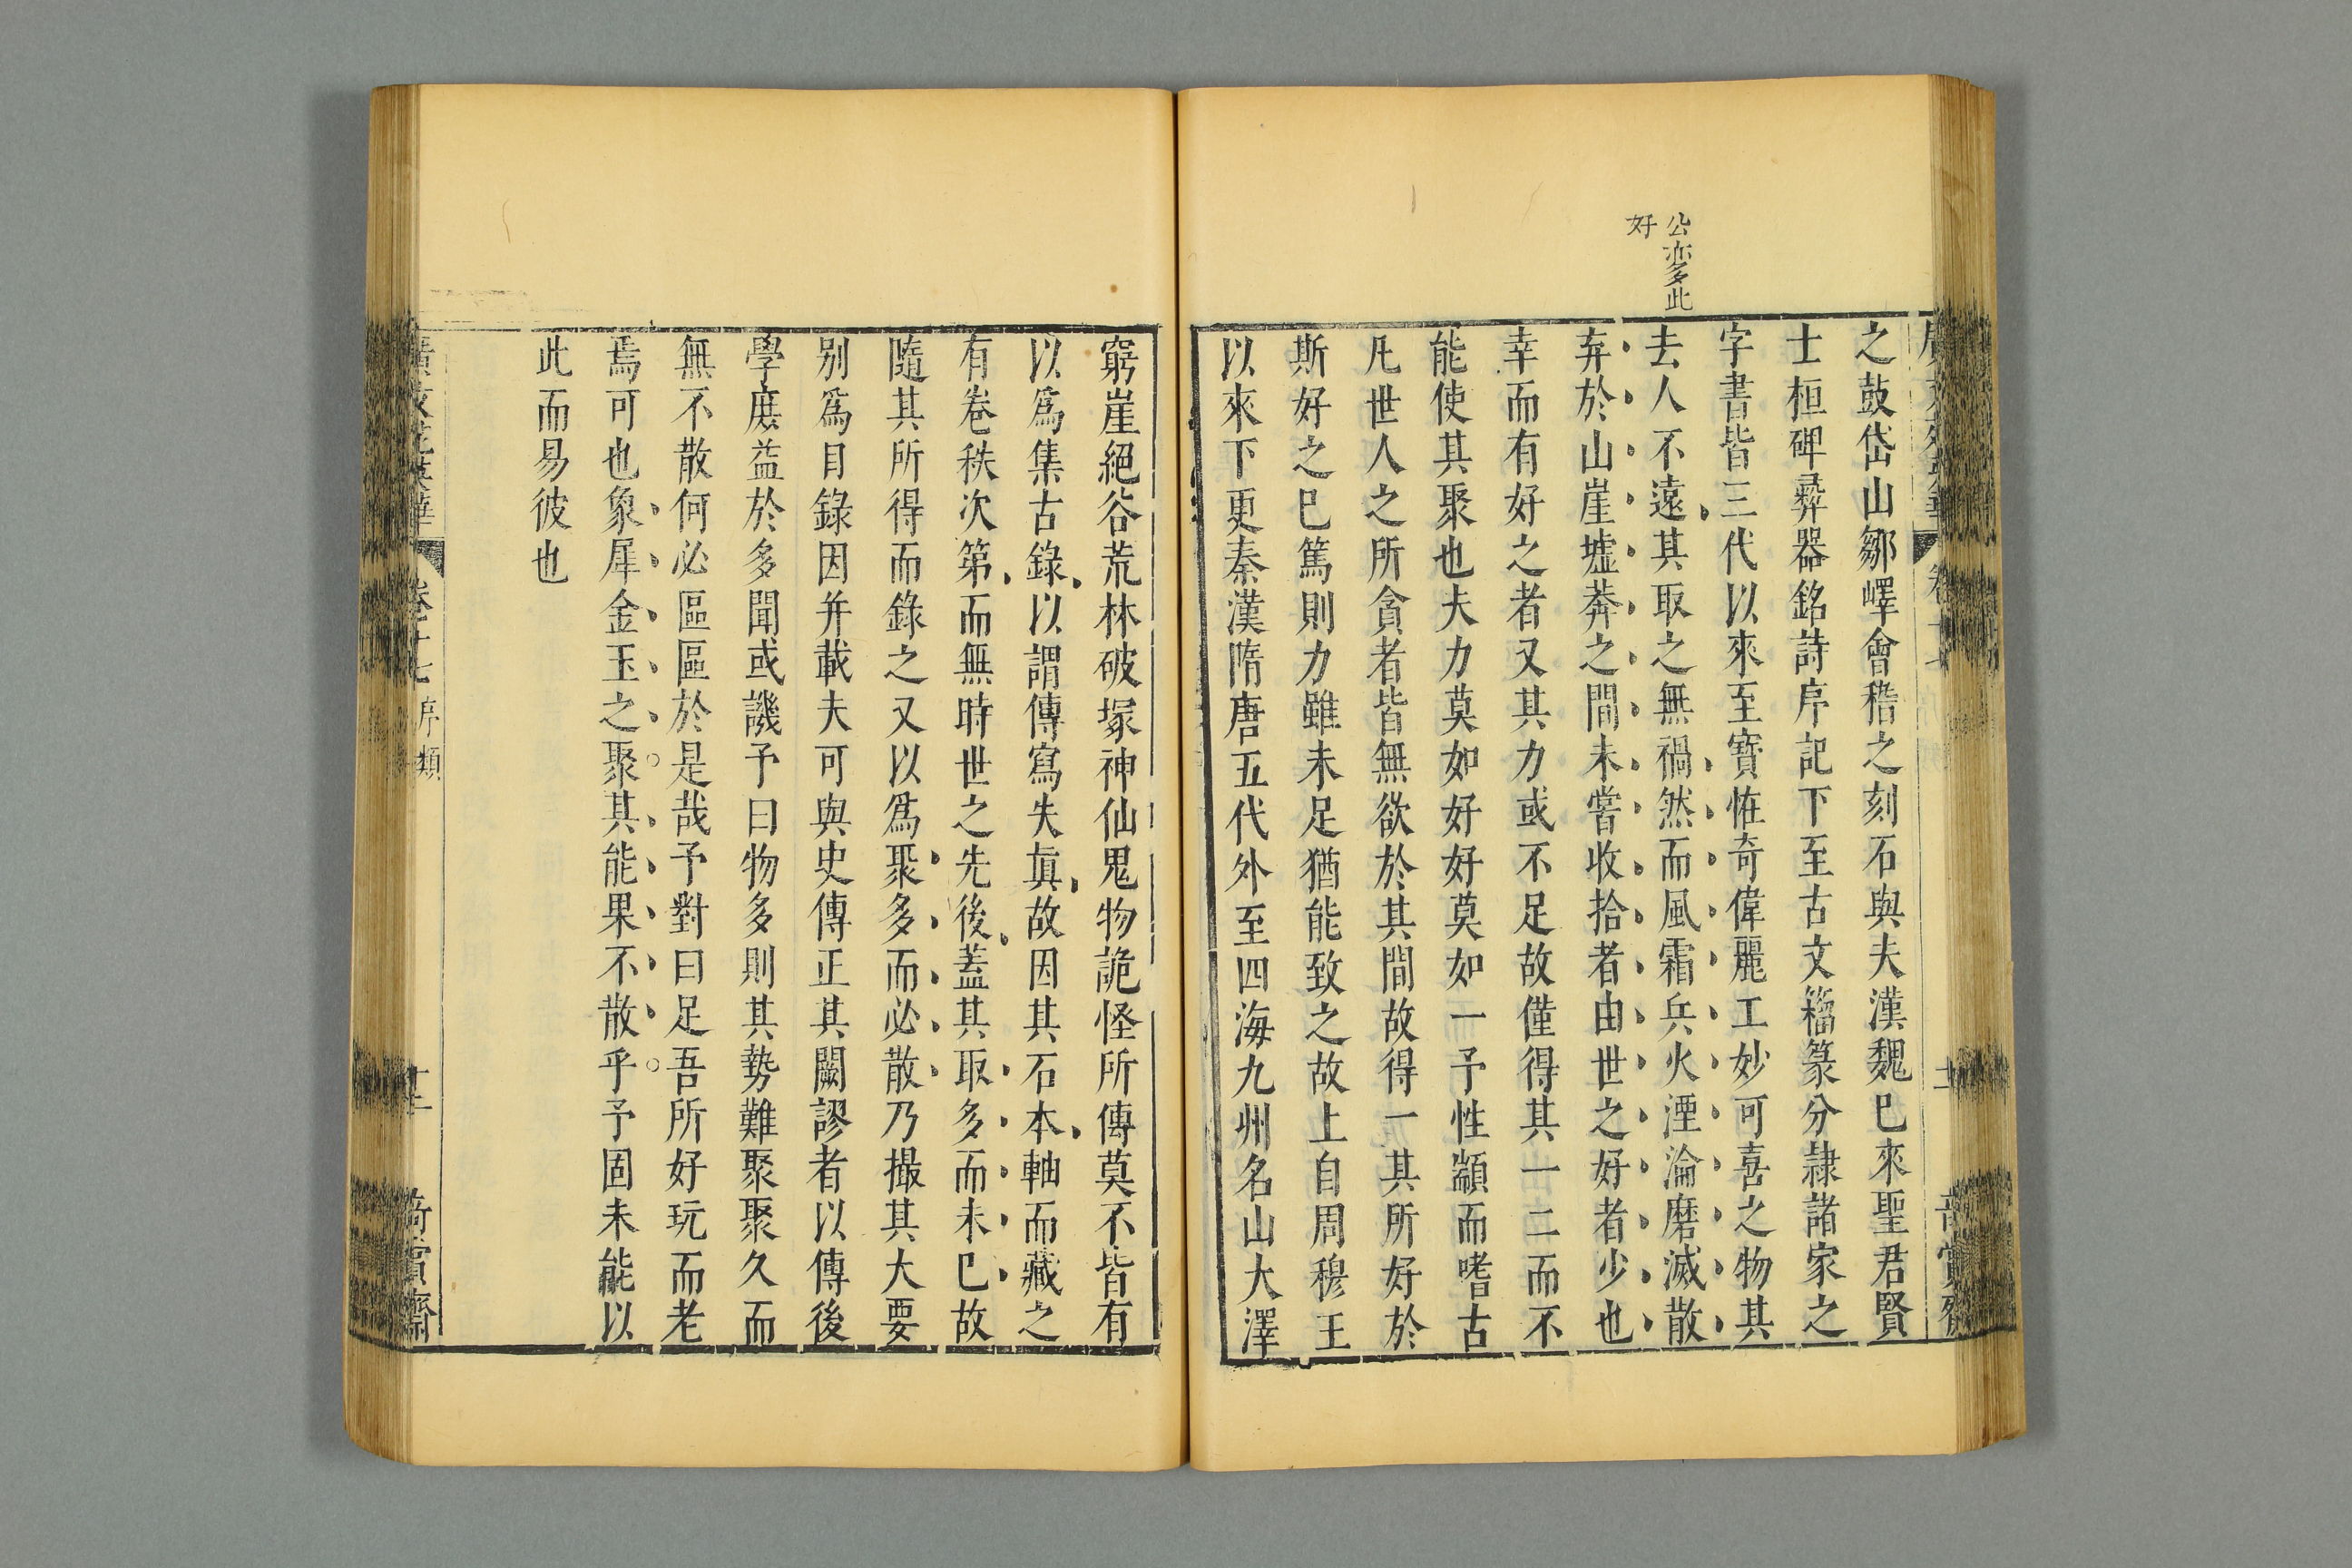 公亦多此
好
之鼓岱山鄒嶧會稽之刻石與夫漢魏已來聖君賢
士桓碑彛器銘詩序記下至古文籀篆分隷諸家之
字書皆三代以來至寳恠奇偉麗工妙可喜之物其
去人不遠其取之無禍然而風霜兵火湮淪磨滅散
弃於山崖墟莽之間未嘗收拾者由世之好者少也
幸而有好之者又其力或不足故僅得其一二而不
能使其聚也夫力莫如好好莫如一予性顓而嗜古
凡世人之所貪者皆無欲於其間故得一其所好於
斯好之已篤則力雖未足猶能致之故上自周穆王
以來下更秦漢隋唐五代外至四海九州名山大澤
窮崖絕谷荒林破塚神仙鬼物詭怪所傳莫不皆有
以爲集古錄以謂傳寫失眞故因其石本軸而藏之
有卷秩次第而無時世之先後蓋其取多而未已故
隨其所得而錄之又以爲聚多而必散乃撮其大要
別爲目錄因幷載夫可與史傳正其闕謬者以傳後
學庶益於多聞或譏予曰物多則其勢難聚聚久而
無不散何必區區於是哉予對曰足吾所好玩而老
焉可也象犀金玉之聚其能果不散乎予固未能以
此而易彼也
廣文苑英華 卷十七 序類 十二